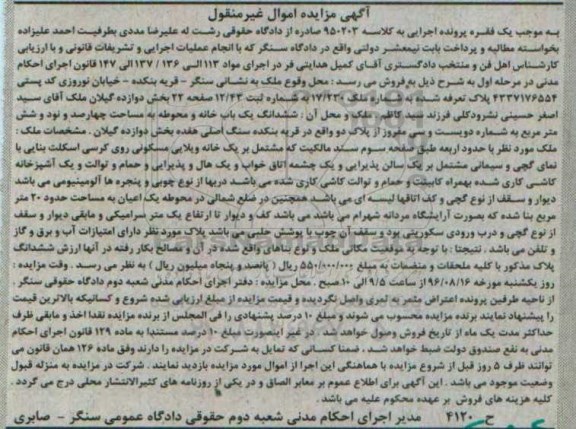 آگهی مزایده اموال غیرمنقول
به موجب یک فقره پرونده اجرایی به کلاسه ۹۵۰۲۰۳ صادره از دادگاه حقوقی رشت له علیرضا مددی بطرفیت احمد علیزاده
بخواسته مطالبه و پرداخت بابت نیمعشر دولتی واقع در دادگاه سنگر که با انجام عملیات اجرایی و تشریفات قانونی و با ارزیابی
کارشناس اهل فن و منتخب دادگستری آقای کمیل هدایتی فر در اجرای مواد ۱۱۳ الی ۱۳۶ / ۱۳۷ الی ۱۴۷ قانون اجرای احکام
مدنی در مرحله اول به شرح ذیل به فروش می رسد : محل وقوع ملک به نشانی سنگر - قریه بنکده - خیابان نوروزی کد پستی
۴۳۳۷۱۷۶۵۵۴ پلاک تعرفه شده به شماره ملک ۱۷/۲۳۰ به شماره ثبت ۱۲/۴۳ صفحه ۲۲ بخش دوازده گیلان ملک آقای سید
اصغر حسینی نشرودکلی فرزند سید کاظم . ملک و محل آن : ششدانگ یک باب خانه و محوطه به مساحت چهارصد و نود و شش
متر مربع به شماره دویست و سی مفروز از پلاک دو واقع در قریه بنکده سنگ اصلی هفده بخش دوازده گیلان . مشخصات ملک :
ملک مورد نظر با حدود اربعه طبق صفحه سوم سند مالکیت که مشتمل بر یک خانه ویلایی مسکونی روی کرسی اسکلت بنایی با
نمای گچی و سیمانی مشتمل بر یک سالن پذیرایی و یک چشمه اتاق خواب و یک هال و پذیرایی و حمام و توالت و یک آشپزخانه
کاشی کاری شده بهمراه کابینت و حمام و توالت کاشی کاری شده می باشد دربها از نوع چوبی و پنجره ها آلومینیومی می باشد
دیوار و سقف از نوع گچی و کف اتاقها لیسه ای می باشد همچنین در ضلع شمالی در محوطه یک اعیان به مساحت حدود ۲۰ متر
مربع بنا شده که بصورت آرایشگاه مردانه شهرام می باشد می باشد کف و دیوار تا ارتفاع یک متر سرامیکی و مابقی دیوار و سقف
از نوع گچی و درب ورودی سکوریتی بود و سقف آن چوب با پوشش حلبی می باشد پلاک مورد نظر دارای امتیازات آب و برق و گاز
و تلفن می باشد . نتیجتا : با توجه به موقعیت مکانی ملک و نوع بناهای واقع شده در آن و مصالح بکار رفته در آنها ارزش ششدانگ
پلاک مذکور با کلیه ملحقات و منضمات به مبلغ ۵۵۰/۰۰۰/۰۰۰ ریال ( پانصد و پنجاه میلیون ریال ) به نظر می رسد . وقت مزایده :
روز یکشنبه مورخه ۹۶/۰۸/۱۶ از ساعت ۹/۵ الی ۱۰ صبح . محل مزایده : دفتر اجرای احکام مدنی شعبه دوم دادگاه حقوقی سنگر .
از ناحیه طرفین پرونده اعتراض مثمر به ثمری واصل نگردیده و قیمت مزایده از مبلغ ارزیابی شده شروع و کسانیکه بالاترین قیمت
را پیشنهاد نمایند برنده مزایده محسوب می شوند و مبلغ ۱۰ درصد پیشنهادی را فی المجلس از برنده مزایده نقدا اخذ و مابقی ظرف
حداکثر مدت یک ماه از تاریخ فروش وصول خواهد شد . در غیر اینصورت مبلغ ۱۰ درصد مستندا به ماده ۱۲۹ قانون اجرای احکام
مدنی به نفع صندوق دولت ضبط خواهد شد . ضمنا کسانی که تمایل به شرکت در مزایده را دارند وفق ماده ۱۲۶ همان قانون می
توانند ظرف ۵ روز قبل از شروع مزایده با هماهنگی این اجرا از اموال مورد مزایده بازدید نمایند . شرکت در مزایده به منزله قبول
وضعیت موجود می باشد . این آگهی برای اطلاع عموم بر معابر الصاق و در یکی از روزنامه های کثیرالانتشار محلی درج می گردد .
کلیه هزینه های فروش بر عهده محکوم علیه می باشد .
ح ۴۱۲۰ مدیر اجرای احکام مدنی شعبه دوم حقوقی دادگاه عمومی سنگر - صابری